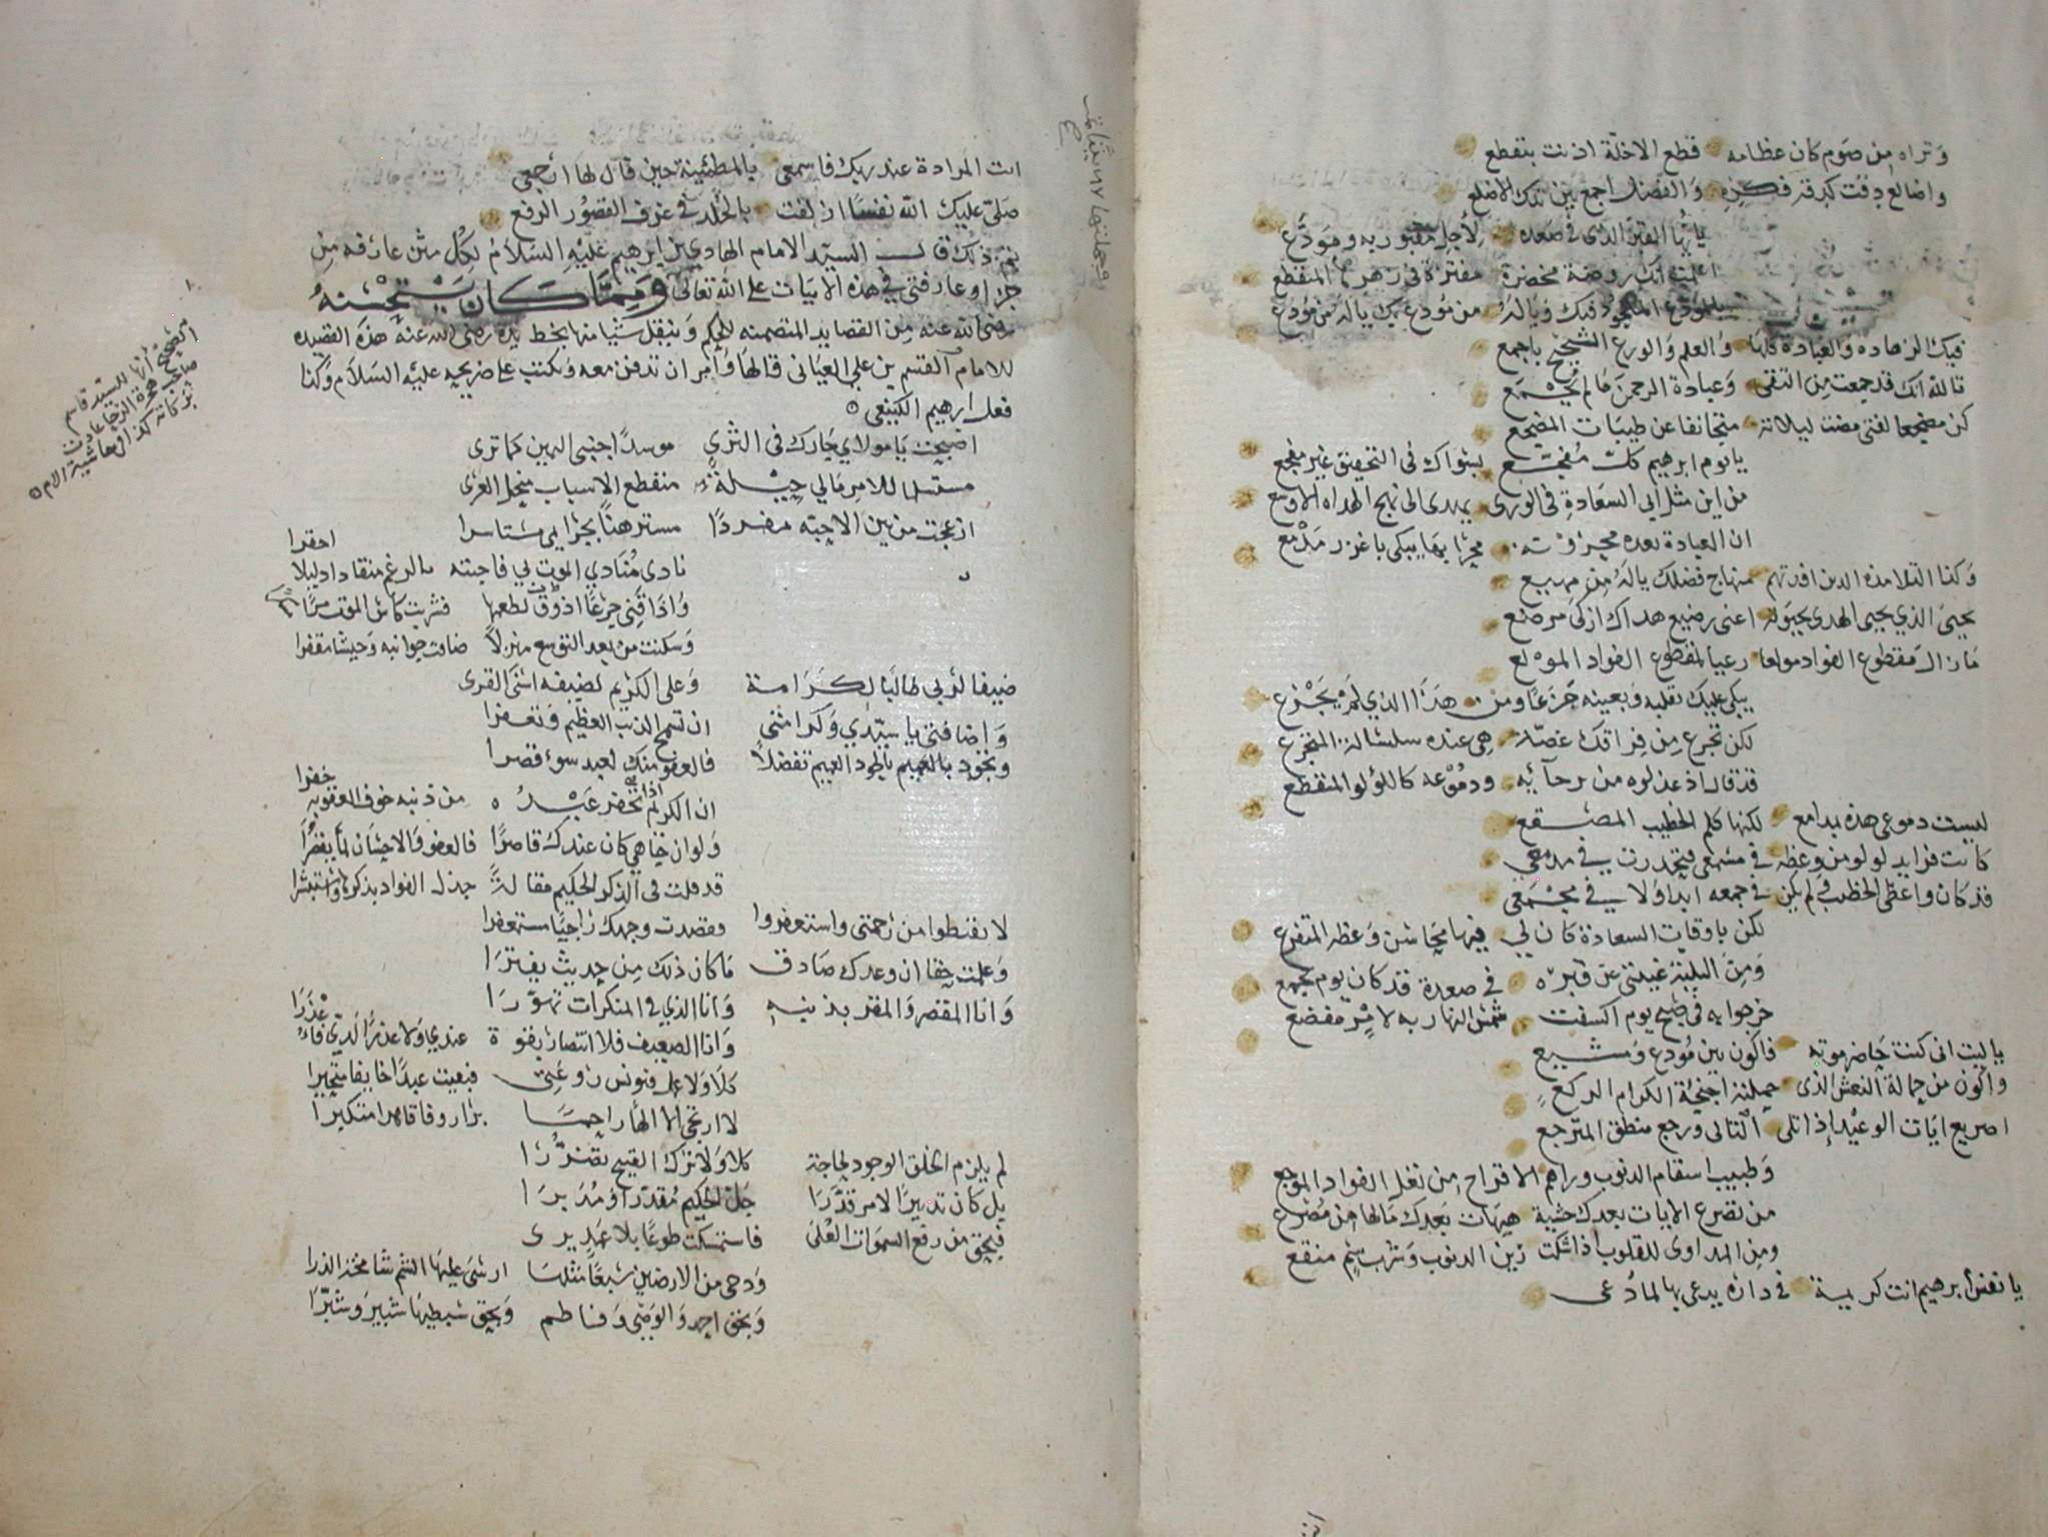 وتراه من صوم كان عظامه قطع الاخلة اذنت بتقطع
واضالع دقت كدقة فكره والفضل اجمع بين تلك الاضلع
يا ايها القبر الذي في صعده لاجل مقبور به ومودع
اعلمت انك روضة مخضرة مفترة في زهرها المتقطع
فيك الزهاده والعبادة كلها والعلم والورع الشحيح باجمع
تالله انك قد جمعت من التقى وعبادة الرحمن مالم يجمع
كن مضجعا لفتى مضت ليلاته متجانفا عن طيبات المضجع
يا يوم ابرهيم كل مفجع بسواك في التحقيق غير مفجع
من اين مثل ابي السعادة في الورى يهدى الى نهج الهداه الاوسع
ان العبادة بعده محزونة محرابها يبكى باغزر مدمع
وكذا التلامذه الذين افدتهم منهاج فضلك ياله من مهيع
يحيى الذي يحيى الهدى بحيوته اعنى رضيع هداك ازكى مرضع
مازال مقطوع الفواد مولعا رعيا لمقطوع الفواد المولع
يبكى عليك بقلبه وبعينه جزعا ومن هذا الذي لم يجزع
لكن تجرع من فراقك غصة هي عنده سلسالة المتجرع
قد قال اذ عذلوه من برحائه ودموعه كاللؤلو المتقطع
ليست دموعى هذه بمدامع لكنها كلم الخطيب المصقع
كانت فرايد لولو من وعظه في مسمعى فتحدرت في مدمعى
قد كان واعظى الخطيب ولم يكن في جمعه ابدا ولا في مجمعى
لكن باوقات السعادة كان لي فيها محاسن وعظه المتفرع
ومن البلية غيبتى عن قبره في صعدة قد كان يوم تجمع
خرجوا به في صبح يوم اكسفت شمس النهار به لامر مفضع
يا ليت انى كنت حاضر موته فاكون بين مودع ومشيع
واكون من حمالة النعش الذى حملته اجنحة الكرام الركع
اصريع ايات الوعيد اذا تلى التالى ورجع منطق المترجع
وطبيب اسقام الذنوب ومراهم الاقراح من نغل الفواد الموجع
من يضرع الايات بعدك خشية هيهات بعدك مالها من مصرع
ومن المداوى للقلوب اذا شكت رين الذنوب وشرب سم منقع
يا نفس ابرهيم انت كريمة في داره يدعى بها لما دعى
وجملتها ٦٧ بيتا تمت
انت المرادة عند ربك فاسمعى يالمطمئنة حين قال لها ارجعى
صلى عليك الله نفسا ازلفت بالخلد في غرف القصور الرفع
ثم ذلك قال السيد الامام الهادي بن ابرهيم عليه السلام لكل من عارفه من
جزا وعارفتى في هذه الابيات على الله تعالى ومما كان يستحسنه
رضي الله عنه من القصايد المتضمنه للحكم وينقل شيا منها بخط يده رضي الله عنه هذه القصيده
للامام القسم بن علي العياني قالها وامر ان تدفن معه وتكتب على ضريحه عليه السلام وكذا
فعل ابرهيم الكينعى ه
اصبحت يا مولاي جارك في الثرى موسدا جنبى اليمين كما ترى
مستسلما للامر مالي حيلة منقطع الاسباب منحل العرى
ازعجت من بين الاحبة مفردا مسترهنا بجرايمي مستاسرا
نادى منادي الموت بي فاجبته بالرغم منقادا ذليلا احقرا
واذاقني جرعا اذوق لطعمها فشربت كاس الموت مرا
وسكنت من بعد التوسع منزلا ضاقت جوانبه وحيشا مقفرا
ضيفا لربي طالبا لكرامة وعلى الكريم لضيفه اسنى القرى
واضافتى يا سيدي وكرامتى ان تسمح الذنب العظيم وتغفرا
وتجود بالعميم بالجود العميم تفضلا فالعفو منك لعبد سوء قصرا
ان الكريم اذا تخفر عبده من ذنبه خوف العقوبه خفرا
ولو ان جاهي كان عندك قاصرا فالعفو والاحسان لما يقصرا
قد قلت في الذكر الحكيم مقالة جذل الفواد بذكرها واستبشرا
لا تقنطوا من رحمتى واستغفروا وقصدت وجهك راجيا مستغفرا
وعلمت حقا ان وعدك صادق ما كان ذلك من حديث يفترا
وانا المقصر والمقر بذنبه وانا الذي في المنكرات تهورا
وانا الضعيف فلا انتصار بقوة عندي ولا عذر لدي فاعذرا
كلا ولا عمل فيونس روعتى فبعيت عبدا خايفا متحيرا
لا ارتجى الا الها راحما برا روفا قاهرا متكبرا
لم يلزم الخلق الوجود لحاجة كلا ولا ترك القبيح تضررا
بل كان تدبيرا لامر قدرا جل الحكيم مقدرا ومدبرا
فبحق من رفع السموات العلى فاستمسكت طوعا بلا عمد يرى
ودحى من الارضين سبعا مثلها ارسى عليها الشم شامخة الذرا
وبحق احمد والوصى وفاطم وبحق سبطيها شبير وشبرا
الصحيح انها للسيد قاسم
صاحب هجرة الرجا عادت
بركاته كذا وهاشية الام ه